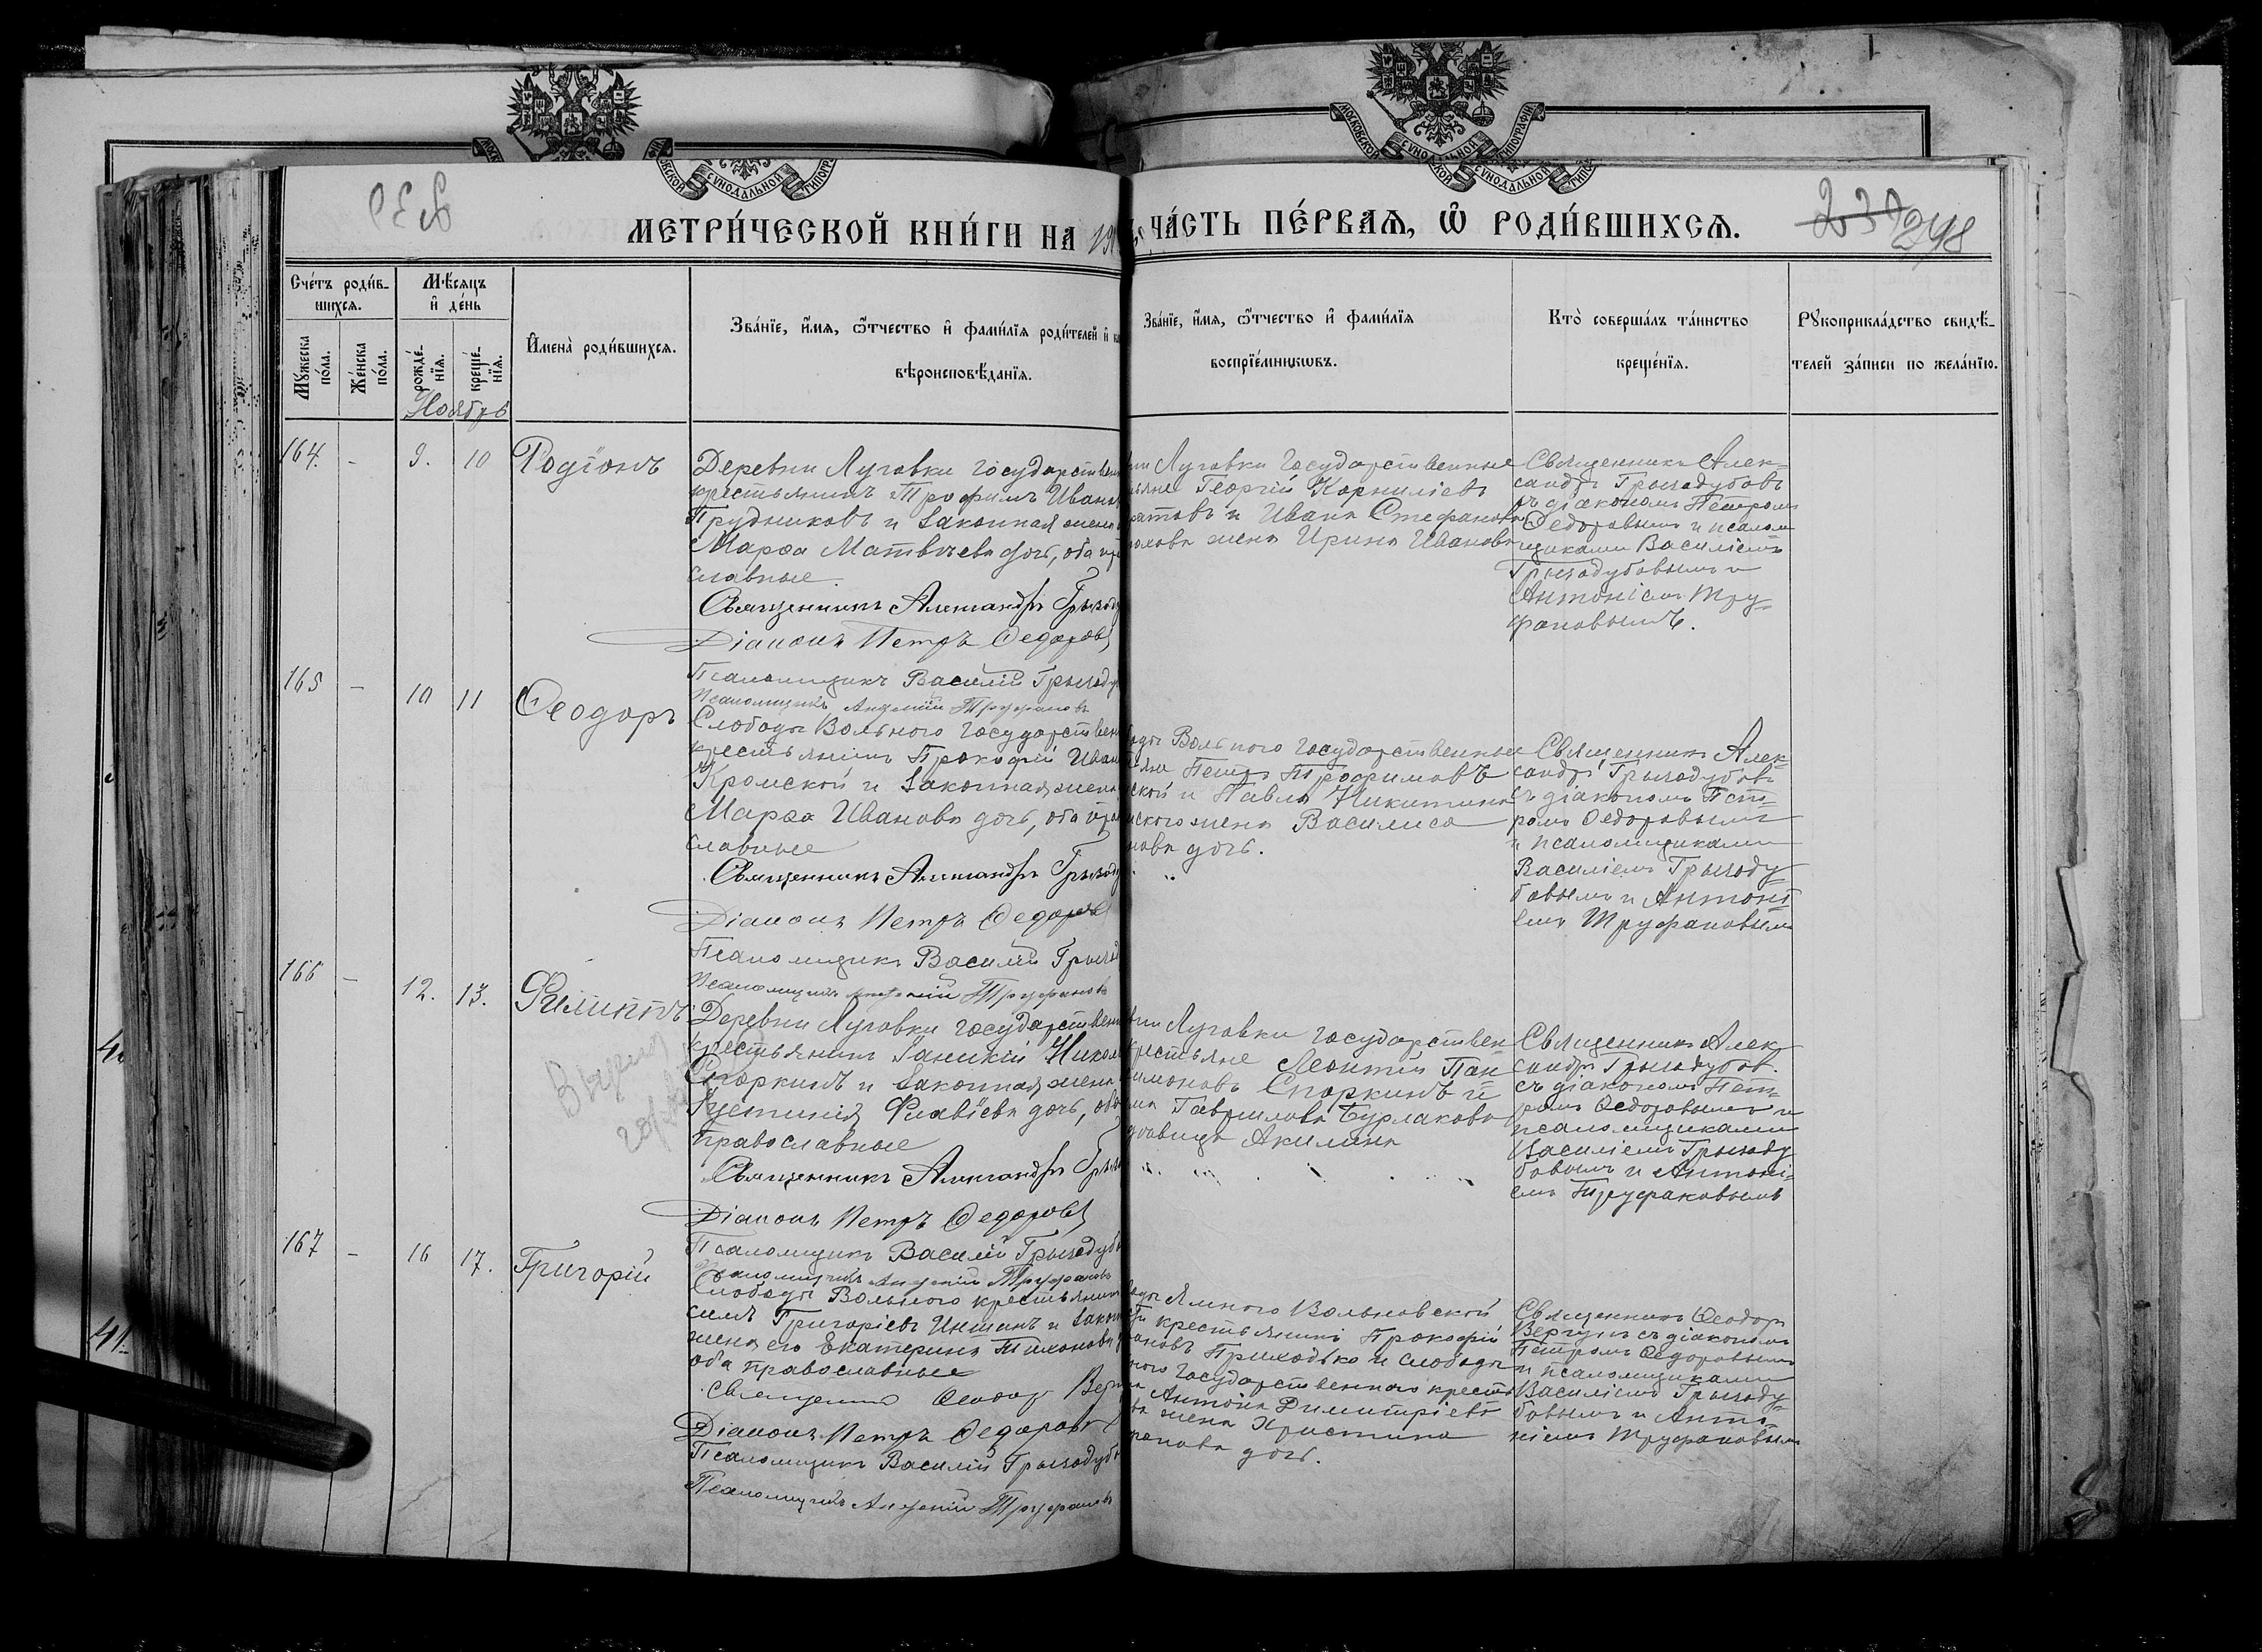 МОСКОВСКОЙ СѴНОДАЛЬНОЙ ТИПОГРАФІИ
239 248
МЕТРИ́ЧЕСКОЙ КНИ́ГИ НА ЧА́СТЬ ПЕ́РВАЯ, Ѡ҆ РОДИ́ВШИХСЯ.
Сче́тъ роди́в-
шихся.
Му́жеска по́ла.
Же́нска по́ла.
Мѣ́сяцъ и҆ де́нь
рожде́-нїя.
креще́-нїя.
И҆мена̀ роди́вшихся.
Зва́нїе, и҆́мя, ѻ҆́тчество и҆ фами́лїя роди́телей и҆
вѣроисповѣ́данїя.
Зва́нїе, и҆́мя, ѻ҆́тчество и҆ фами́лїя
воспрїе́мникѡвъ.
Кто̀ соверша́лъ та́инство
креще́нїя.
Рꙋкоприкла́дство свидѣ́-
телей за́писи по жела́нїю.
Ноябрь
164. - 9. 10 Родіонъ
Деревни Луговки государствен
крестьянинъ Трофимъ Иванов
Прудниковъ и законная жена
Марѳа Матвѣева дочь, оба пра
славные.
Священникъ Александръ Грызоду
Діаконъ Петръ Ѳедоровъ
Псаломщикъ Василій Грызоду
Псаломщикъ Антоній Труфановъ
ни Луговки государственные
яне Георгій Корниліевъ
ратовъ и Ивана Стефанова
жена Ирина Иванова
Священникъ Алек-
сандръ Грызодубовъ
съ діакономъ Петромъ
Ѳедоровымъ и псалом
щиками Василіемъ
Грызодубовымъ и
Антоніемъ Тру-
фановымъ.
165 - 10 11 Ѳеодоръ
Слободы Вольного государствен
крестьянинъ Прокофій Иван
Кромской и законная жена
Марѳа Иванова дочь, оба пра
славные
Священникъ Александръ Грызоду
Діаконъ Петръ Ѳедоровъ
Псаломщикъ Василій Грызод
Псаломщикъ Антоній Труфановъ
оды Вольного государственные
яне Петръ Трофимовъ
ской и Павла Никитина
мского жена Василиса
нова дочь.
Священникъ Алек-
сандръ Грызодубовъ
съ діакономъ Пет-
ромъ Ѳедоровымъ
и псаломщиками
Василіемъ Грызоду-
бовымъ и Антоні-
емъ Труфановымъ
166 - 12. 13. Филиппъ
Деревни Луговки государствен
крестьянинъ Іаникій Никол
Споркинъ и законная жена
Іустинія Флавіева дочь, оба
православные
Священникъ Александръ Грызо
Діаконъ Петръ Ѳедоровъ
Псаломщикъ Василій Грызодубо
Псаломщикъ Антоній Труфановъ
вни Луговки государствен-
крестьяне Леонтій Пан
имоновъ Споркинъ и
Гаврилова Бурлакова
вдовица Акилина
Священникъ Алек-
сандръ Грызодубовъ
съ діакономъ Пет-
ромъ Ѳедоровымъ и
псаломщиками
Василіемъ Грызоду
бовымъ и Антоні-
емъ Труфановымъ
167 - 16 17. Григорій
Слободы Вольного крестьянинъ
Григоріевъ Иншинъ и закон
жена его Екатерина Тихонова
оба православные
Священникъ Ѳеодоръ Верг
Діаконъ Петръ Ѳедоровъ
Псаломщикъ Василій Грызодуб
Псаломщикъ Антоній Труфановъ
оды Ямного Вольновской
крестьянинъ Прокофій
ановъ Приходько и слободы
ного государственного кресть
Антона Димитріева
жена Христина
дочь.
Священникъ Ѳеодоръ
Вергунъ съ діакономъ
Петромъ Ѳедоровымъ
и псаломщиками
Василіемъ Грызоду-
бовымъ и Анто-
ніемъ Труфановымъ
41.